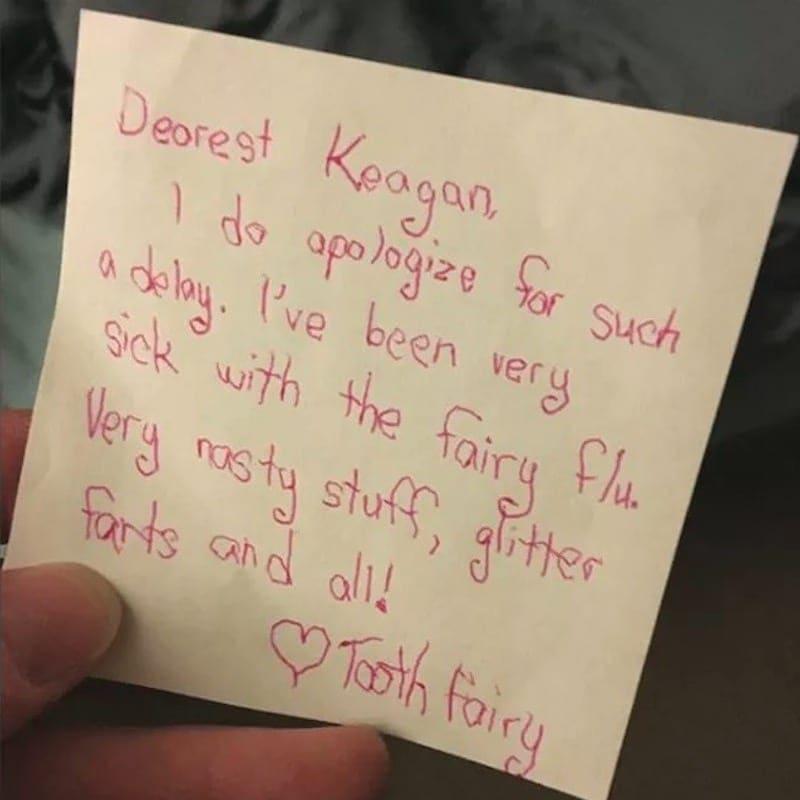 Dearest Keagan,
I do apologize for such
a delay. I've been very
sick with the fairy flu.
Very nasty stuff, glitter
farts and all!
♡ Tooth fairy